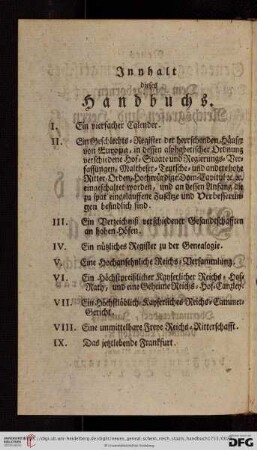 Innhalt
dieses
Handbuchs.
I. Ein vierfacher Calender.
II. Ein Geschlechts-Register der herrschenden Häuser
von Europa, in dessen alphabetischer Ordnung
verschiedene Hof-Staats- und Regierungs-Ver-
fassungen, Maltheser- Teutsche- und andere hohe
Ritter-Orden, Hochwürdige Dom-Capitul
eingeschaltet worden, und an dessen Anfang die
zu spat eingelauffene Zusätze und Verbesserun-
gen befindlich sind.
III. Ein Verzeichniß verschiedener Gesandschafften
an hohen Höfen.
IV. Ein nützliches Register zu der Genealogie.
V. Eine Hochansehnliche Reichs-Versammlung.
VI. Ein Höchstpreißlicher Kayserlicher Reichs-Hof-
Rath, und eine Geheime Reichs-Hof-Cantzley.
VII. Ein Höchstlöblich-Kayserliches Reichs-Cammer-
Gericht.
VIII. Eine unmittelbare Freye Reichs-Ritterschafft.
IX. Das jetztlebende Franckfurt.
DFG